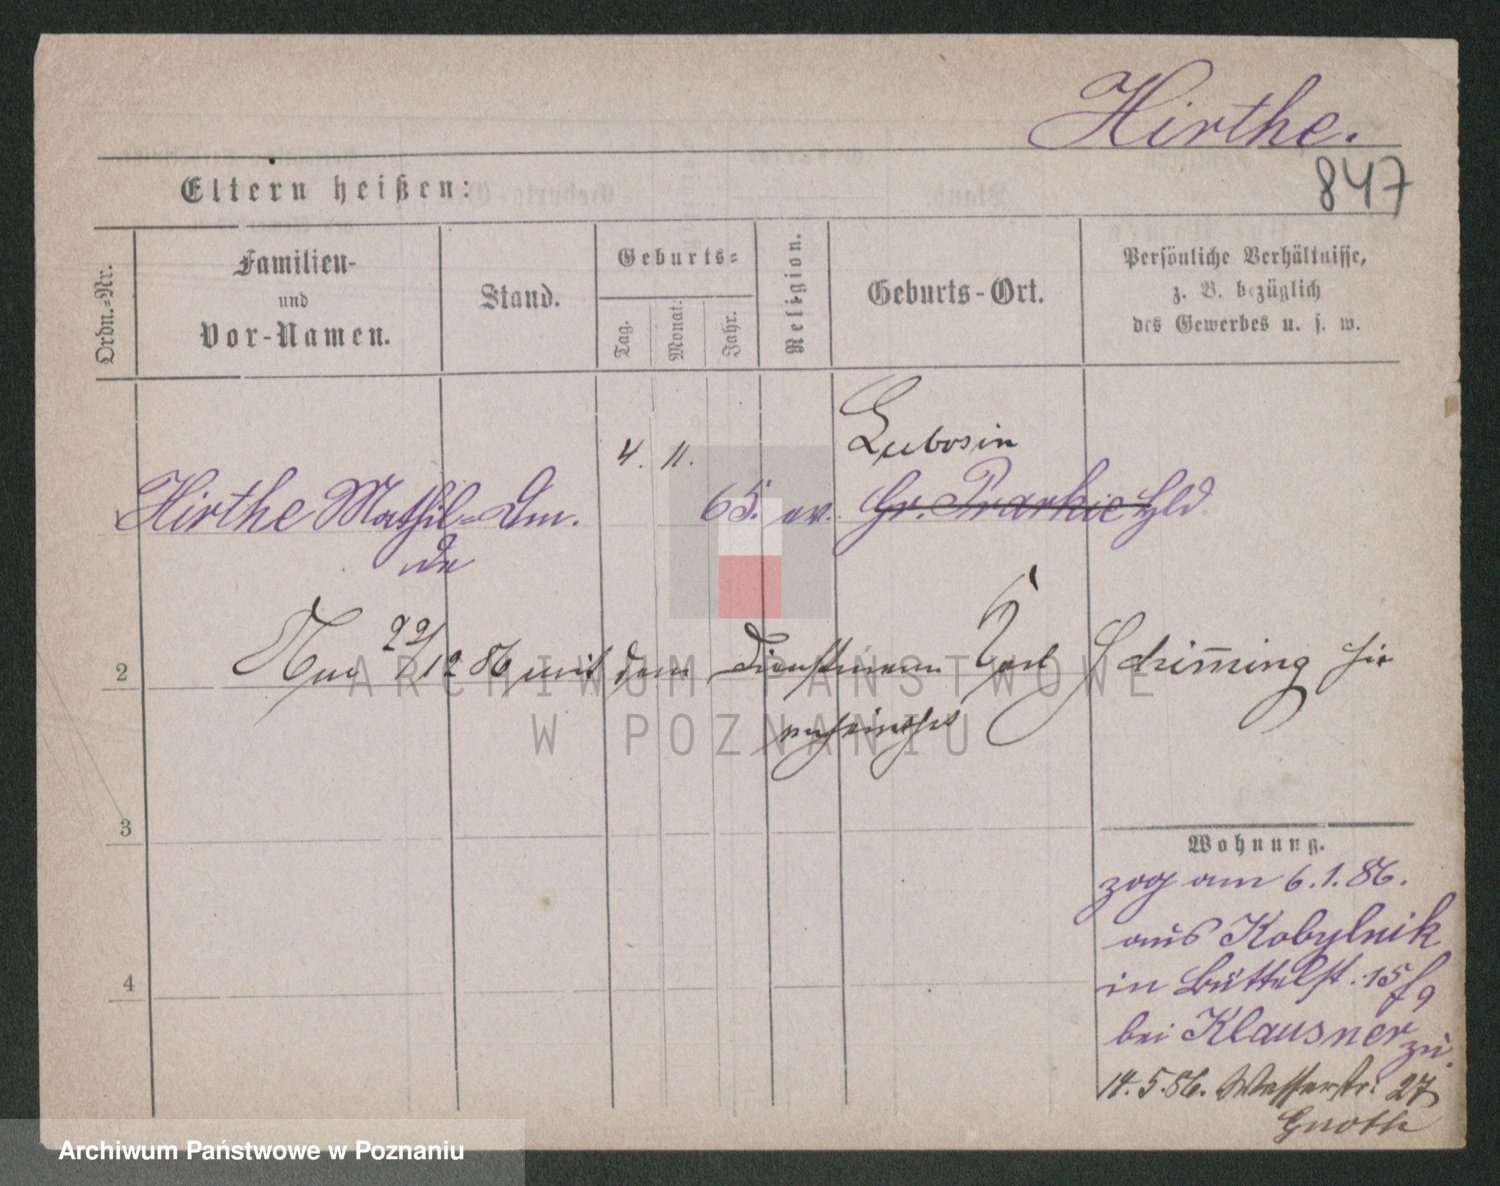 Hirthe.
847
Eltern heißen:
Ordn.-Nr.
Familien-
und
Vor-Namen.
Stand.
Geburts-
Tag.
Monat.
Jahr.
Religion.
Geburts-Ort.
Persönliche Verhältnisse,
z. B. bezüglich
des Gewerbes u. s. w.
Lubosin
4. 11.
Hirthe Mathil- Dm. 65. ev. Gr. Prarkie Hld
de
2
Am 22/12 86 mit dem Dienstmann Karl Schimming hier
verheirathet
3
4
Wohnung.
zog am 6.1.86.
aus Kobylnik
in Büttelst. 15
bei Klausner zu.
14.5.86. Wasserstr. 27
Gnoth
ARCHIWUM PAŃSTWOWE
W POZNANIU
Archiwum Państwowe w Poznaniu